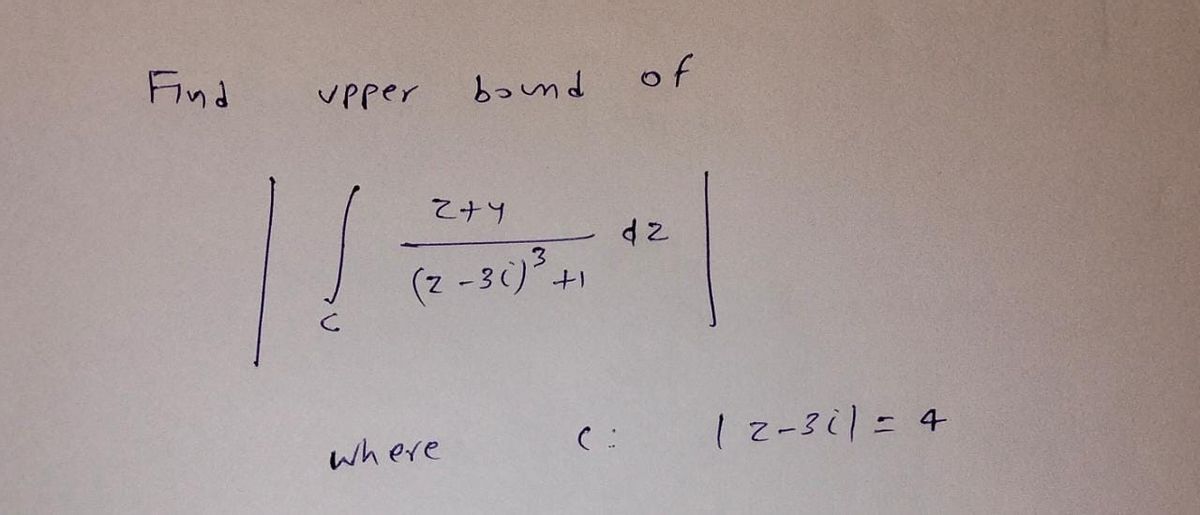 Find upper bound of
| ∫_C (z+4)/((z-3i)^3+1) dz |
where C: |z-3i| = 4